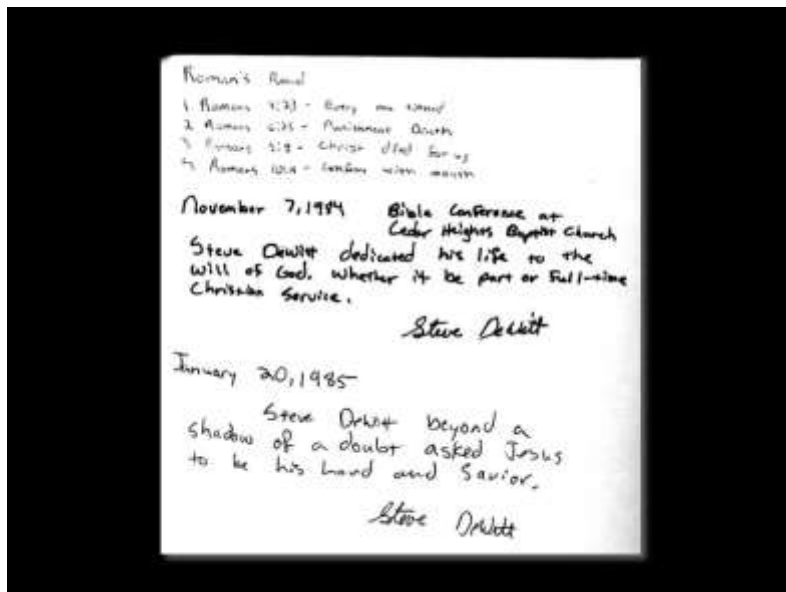 Roman's Road
1. Romans 3:23 - Every one sinned
2. Romans 6:23 - Punishment Death
3. Romans 5:8 - Christ died for us
4. Romans 10:9 - Confess with mouth
November 7, 1984 Bible Conference at
Cedar Heights Baptist Church
Steve DeWitt dedicated his life to the
will of God. Whether it be part or full-time
Christian Service.
Steve DeWitt
January 20, 1985
Steve DeWitt beyond a
shadow of a doubt asked Jesus
to be his Lord and Savior.
Steve DeWitt